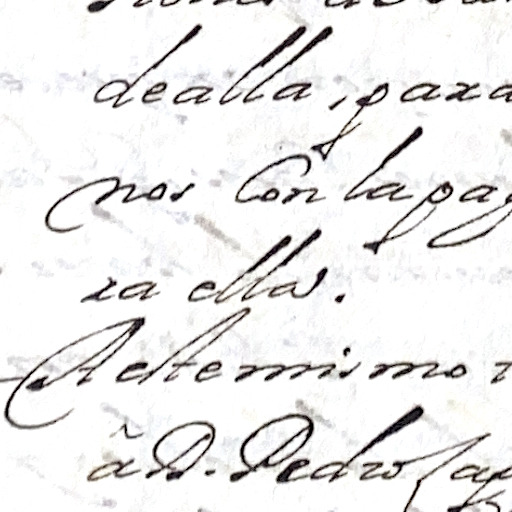 dealla, para
nos Con la pag
ra ellas.
A estemismo
ã D. Pedro